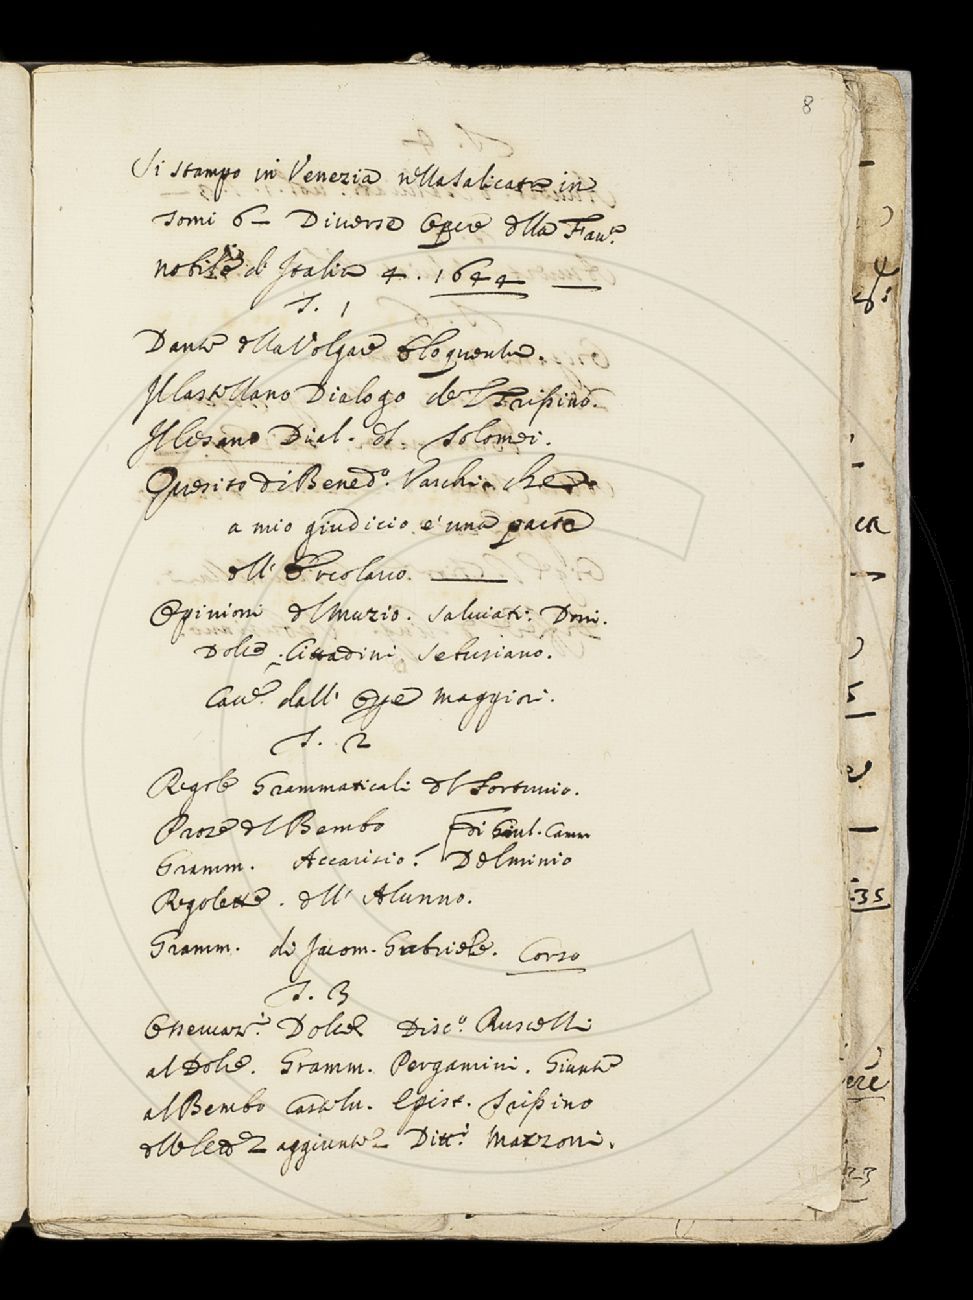 8
Si stampo in Venezia nella Salicata in
tomi 6 – Diverse Opere della Fav.ª
nobile d'Italia 4. 1644
T. 1
Dante della Volgare Eloquenza.
Il Castellano Dialogo del Trissino.
Il Cesano Dial. di. Tolomei.
Quesito di Bened.º Varchi. che
a mio giudicio è una parte
dell' Ercolano.
Opinioni del Muzio. Salviati. Doni.
Dolce. Cittadini
Cav.e dall' Opere maggiori.
T. 2
Regole Grammaticali del Fortunio.
Prose del Bembo di Giul. Cam.
Gramm. Accarisio. Delminio
Regolette. dell' Alunno.
Gramm. di Jacom. Gabriele. Corso
T. 3
Osservaz.i Dolce Disc.º Ruscelli
al Dolce. Gramm. Pergamini. Giunte
al Bembo Castelv. Epist. Trissino
delle lett.e aggiunte Mazzoni.